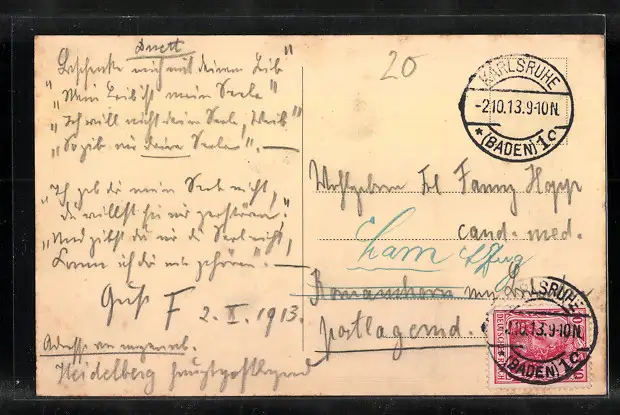 Duett
Beschenke mich mit deinem Leib"
"Mein Leib ist meine Seele"
"Ich will nicht deine Seele, Weib"
"So gib mir deine Seele". —
"Ich geb dir meine Seele nicht,
du willst sie nur zerstören."
"Und gibst du mir die Seele nicht,
kann ich dir nie gehören". —
Gruß F 2. X. 1913.
Adresse von
Heidelberg hauptpostlagernd
20
KARLSRUHE
-2.10.13.9-10N.
* (BADEN) 1
Wohlgeboren Frl Fanny Hopp
cand. med.
Cham
Zug
Romanshorn
postlagernd.
KARLSRUHE
2.10.13.9-10N
(BADEN) 1
DEUTSCHES REICH
10